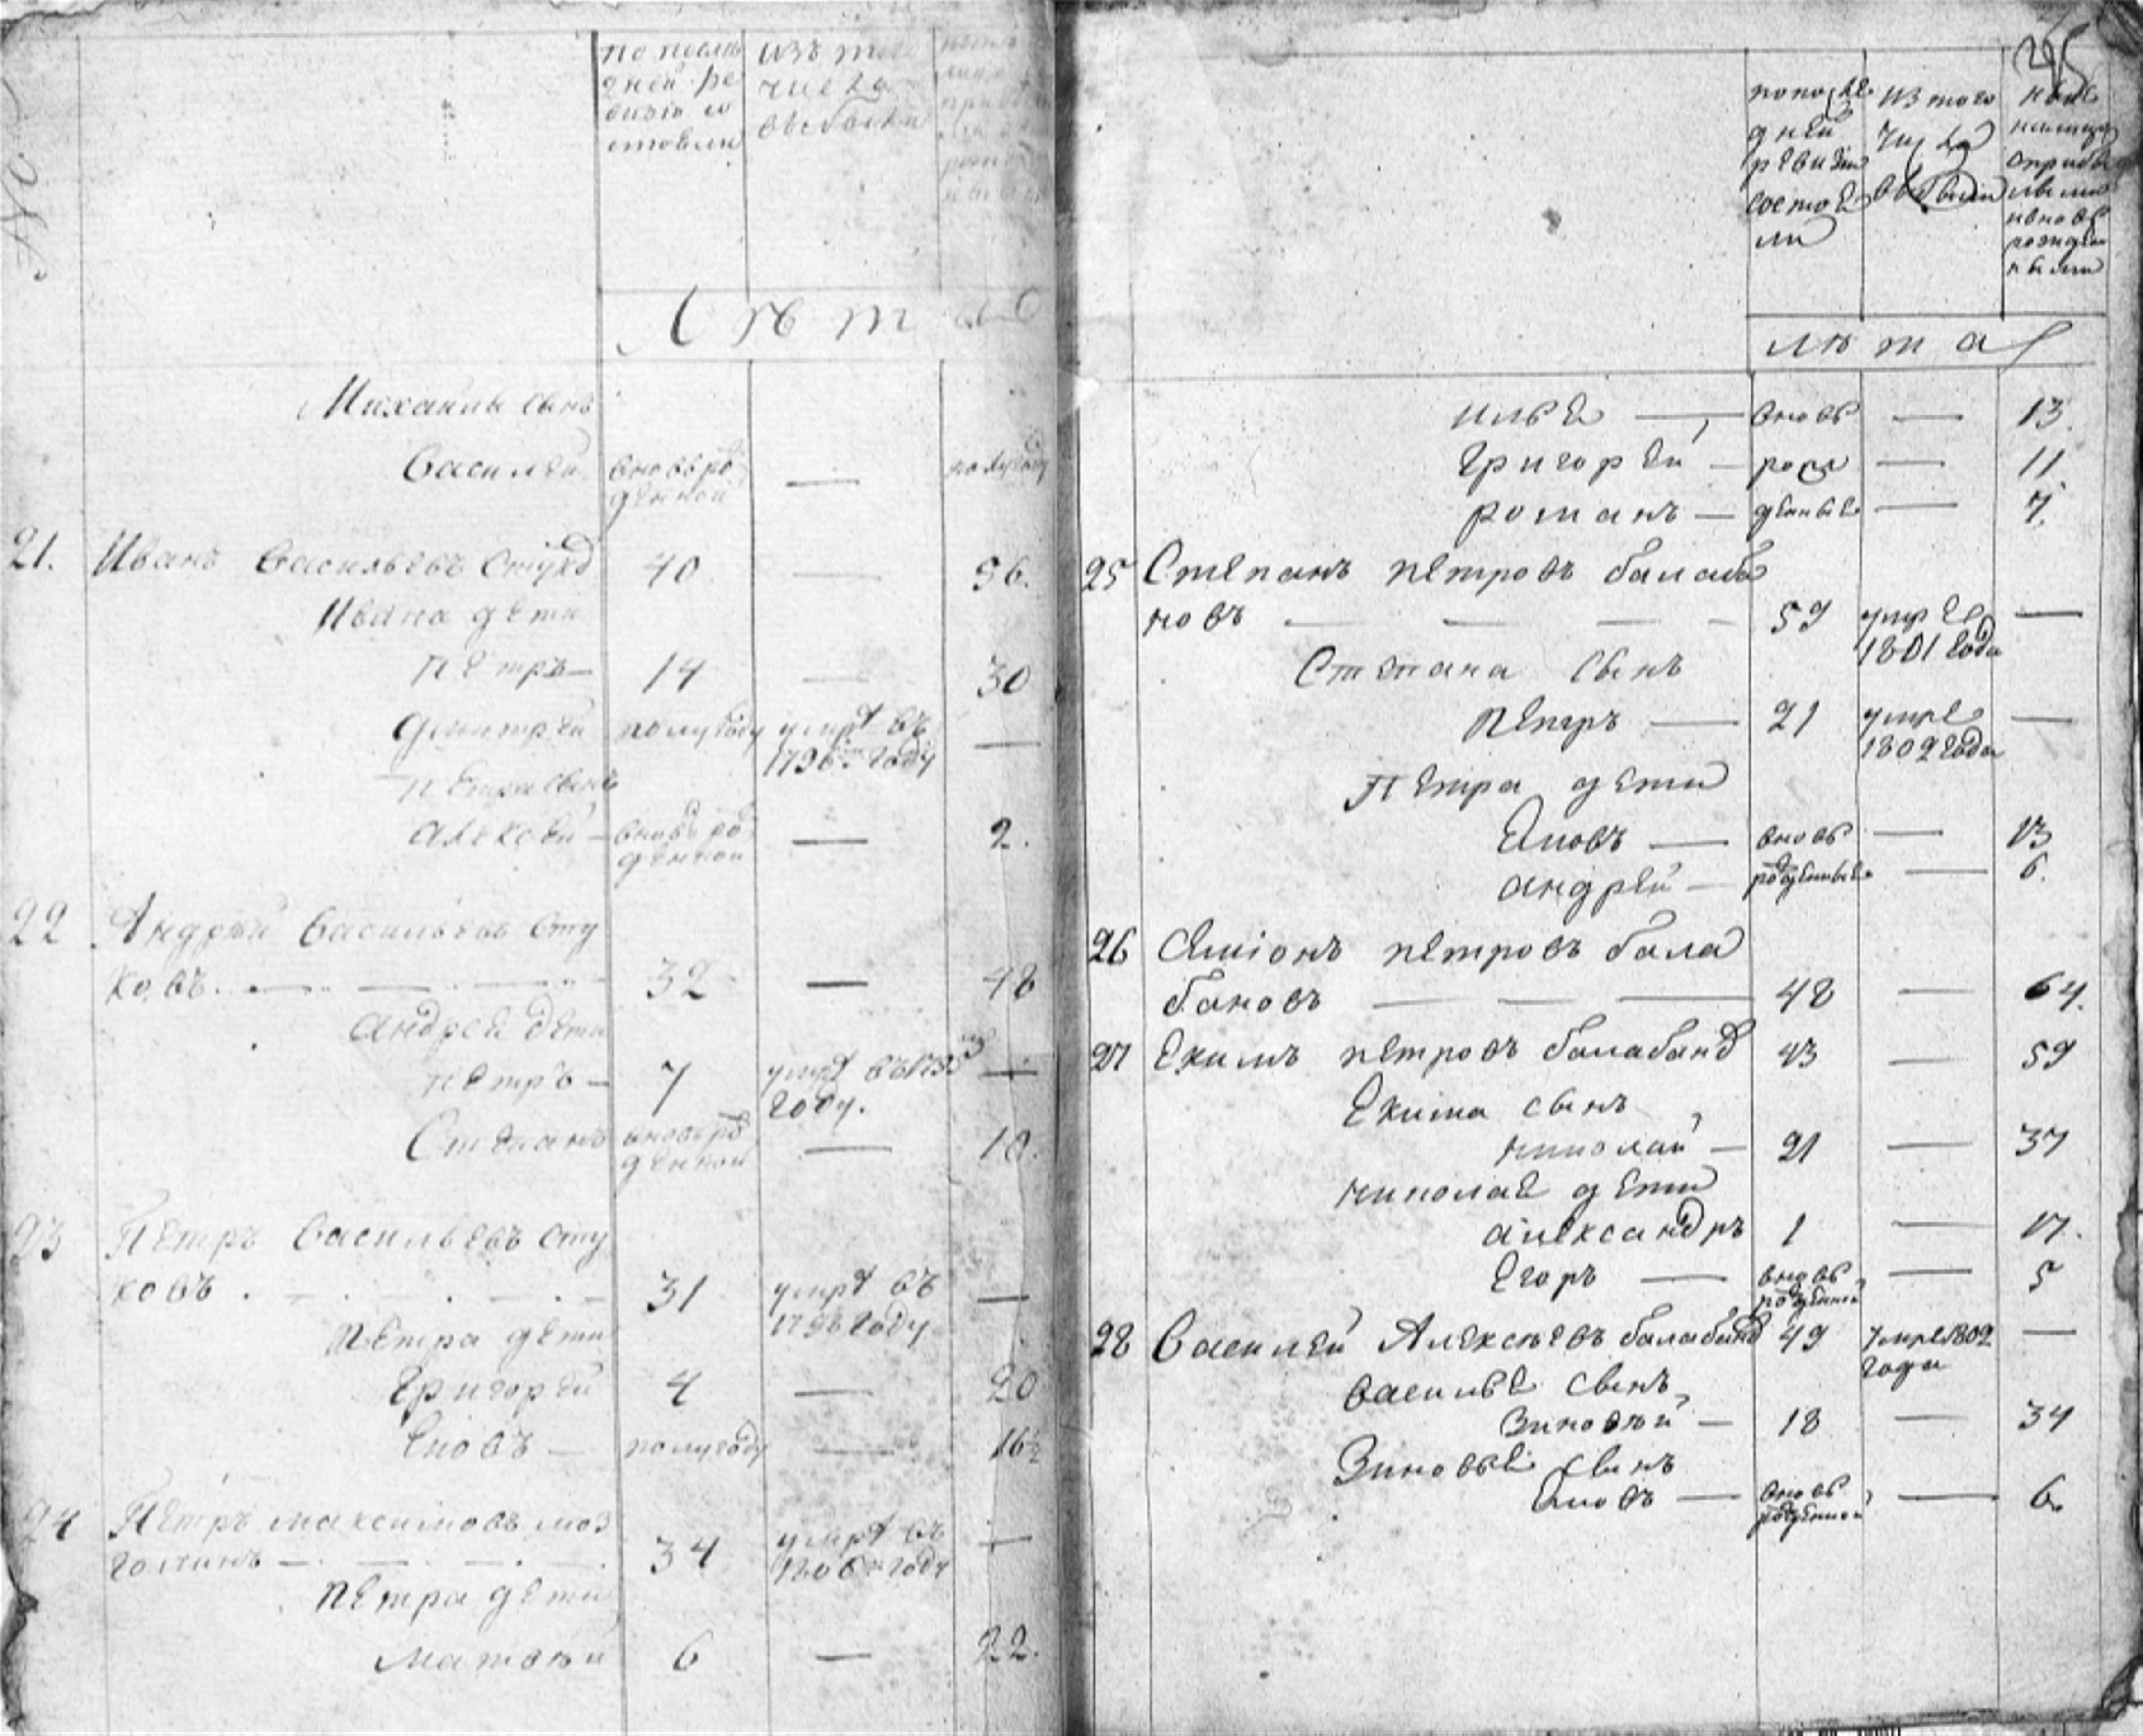 по послѣ
дней ре
визiи со
стояли
изъ того
числа
выбыли
Лѣта
Михаилы сынъ
Василей вновь ро
жденной — полугоду
21. Иванъ Васильевъ Стуко 40 — 56.
Ивана дети
Петръ — 14 — 30
Дмитрей полугоду умре въ
1796м году —
Петра сынъ
Алексей — вновь ро
жденной — 2.
22 Андрей Васильевъ Сту
ковъ. — 32 — 48
Андрея дети
Петръ — 7 умре въ 1795
году. —
Степанъ вновь ро
жденной — 10.
23 Петръ Васильевъ Сту
ковъ . — 31 умре въ
1798 году —
Петра дети
Григорей 4 — 20
Еновъ — полугоду — 16½
24 Петръ Максимовъ Моз
голинъ — 34 умре въ
1806м году —
Петра дети
Матвей 6 — 22.
265
по после
дней
ревизии
состоя
ли
из того
числа
выбыли
ныне
налицо
с прибы
лыми
и вновь
рожден
ными
лѣта
Илья — вновь — 13.
Григорей — рож — 11
Романъ — денные — 7.
25 Степанъ Петровъ Балаба
новъ — 59 умре
1801 года —
Степана сынъ
Петръ — 21 умре
1802 года —
Петра дети
Еновъ — вновь — 13
Андрей — рожденные — 6.
26 Симионъ Петровъ Бала
бановъ — 48 — 64.
27 Екимъ Петровъ Балабано 43 — 59
Екима сынъ
Николай — 21 — 37
Николая дети
Александръ 1 — 17.
Егоръ — вновь
рожденной — 5
28 Василей Алексѣевъ Балабано 49 умре 1802
года —
Василья сынъ
Зиновей — 18 — 34
Зиновья сынъ
Еновъ — вновь
рожденной — 6.